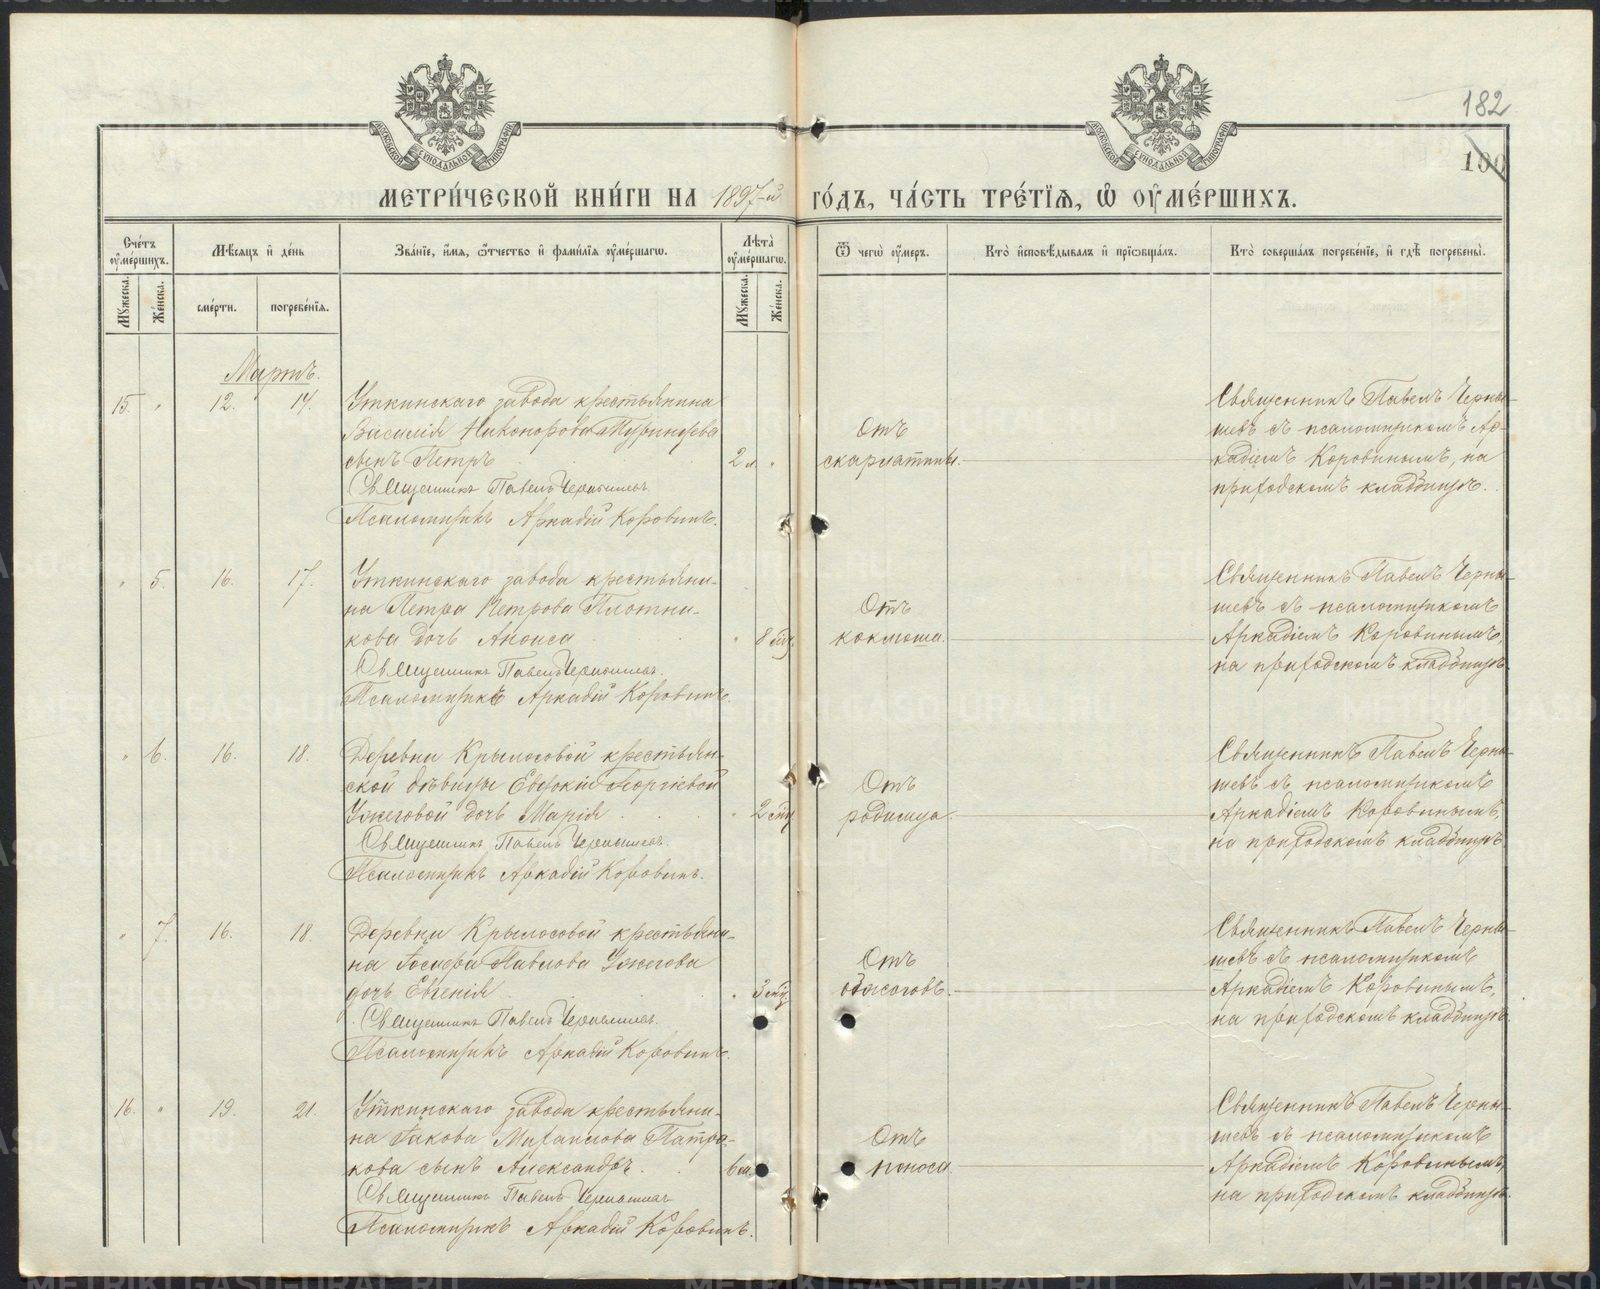 182
100
МЕТРИ́ЧЕСКОЙ КНИ́ГИ НА 1897-й ГО́ДЪ, ЧА́СТЬ ТРЕ́ТЇѦ, Ѡ҆ ОУ҆МЕ́РШИХЪ.
Сче́тъ оу҆ме́ршихъ.
Мѣ́сѧцъ и҆ де́нь
Зва́нїе, и҆́мѧ, ѻ҆́тчество и҆ фами́лїѧ оу҆ме́ршагѡ.
Лѣ́та оу҆ме́ршагѡ.
Ѿ чегѡ̀ оу҆́меръ.
Кто̀ и҆сповѣ́дывалъ и҆ прїѡбща́лъ.
Кто̀ соверша́лъ погребе́нїе, и҆ гдѣ̀ погребены̀.
Мꙋ́жеска.
Же́нска.
сме́рти.
погребе́нїѧ.
Мꙋ́жеска.
Же́нска.
Мартъ.
15. " 12. 14.
Уткинскаго завода крестьянина
Василія Никонорова
сынъ Петръ
2 л. "
Священникъ Павелъ Чернышевъ
Псаломщикъ Аркадій Коровинъ.
Отъ
скарлатины.
Священникъ Павелъ Черны-
шевъ съ псаломщикомъ Ар-
кадіемъ Коровинымъ, на
приходскомъ кладбищѣ.
" 5. 16. 17.
Уткинскаго завода крестьяни-
на Петра Петрова Плотни-
кова дочь Анфиса
" 8 мц.
Священникъ Павелъ Чернышевъ.
Псаломщикъ Аркадій Коровинъ.
Отъ
коклюша.
Священникъ Павелъ Черны-
шевъ съ псаломщикомъ
Аркадіемъ Коровинымъ,
на приходскомъ кладбищѣ
" 6. 16. 18.
Деревни Крылосовой крестьян-
ской дѣвицы Евдокіи Георгіевой
Ужеговой дочь Марія
" 2 мц
Священникъ Павелъ Чернышевъ.
Псаломщикъ Аркадій Коровинъ.
Отъ
родимца.
Священникъ Павелъ Черны-
шевъ съ псаломщикомъ
Аркадіемъ Коровинымъ,
на приходскомъ кладбищѣ
" 7. 16. 18.
Деревни Крылосовой крестьяни-
на Іосифа Павлова Ужегова
дочь Евгенія
" 3 мц.
Священникъ Павелъ Чернышевъ.
Псаломщикъ Аркадій Коровинъ.
Отъ
Священникъ Павелъ Черны-
шевъ съ псаломщикомъ
Аркадіемъ Коровинымъ,
на приходскомъ кладбищѣ
16. " 19. 21.
Уткинскаго завода крестьяни-
на Іакова Михаилова Патра-
кова сынъ Александръ.
Священникъ Павелъ Чернышевъ
Псаломщикъ Аркадій Коровинъ.
Отъ
поноса.
Священникъ Павелъ Черны-
шевъ съ псаломщикомъ
Аркадіемъ Коровинымъ,
на приходскомъ кладбищѣ
METRIKI.GASO-URAL.RU